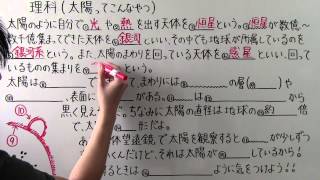 理科(太陽ってこんなやつ)
太陽のように自分で①光や②熱を出す天体を③恒星という。③恒星が数億〜
数千億集まってできた天体を④銀河といい、その中でも地球が所属しているのを
⑤銀河系という。また、太陽のまわりを回っている天体を⑥惑星といい、回って
いるものの集まりを という。
太陽は で、まわりには の層( )や
、表面に がある。 は から
黒く見えるんだ。ちなみに太陽の直径は地球の約 倍
で、 形だよ。
体望遠鏡で太陽を観察すると が少しずつ
いくんだけど、それは太陽が しているから!
るときは に気をつけよう!!
⑩
⑨